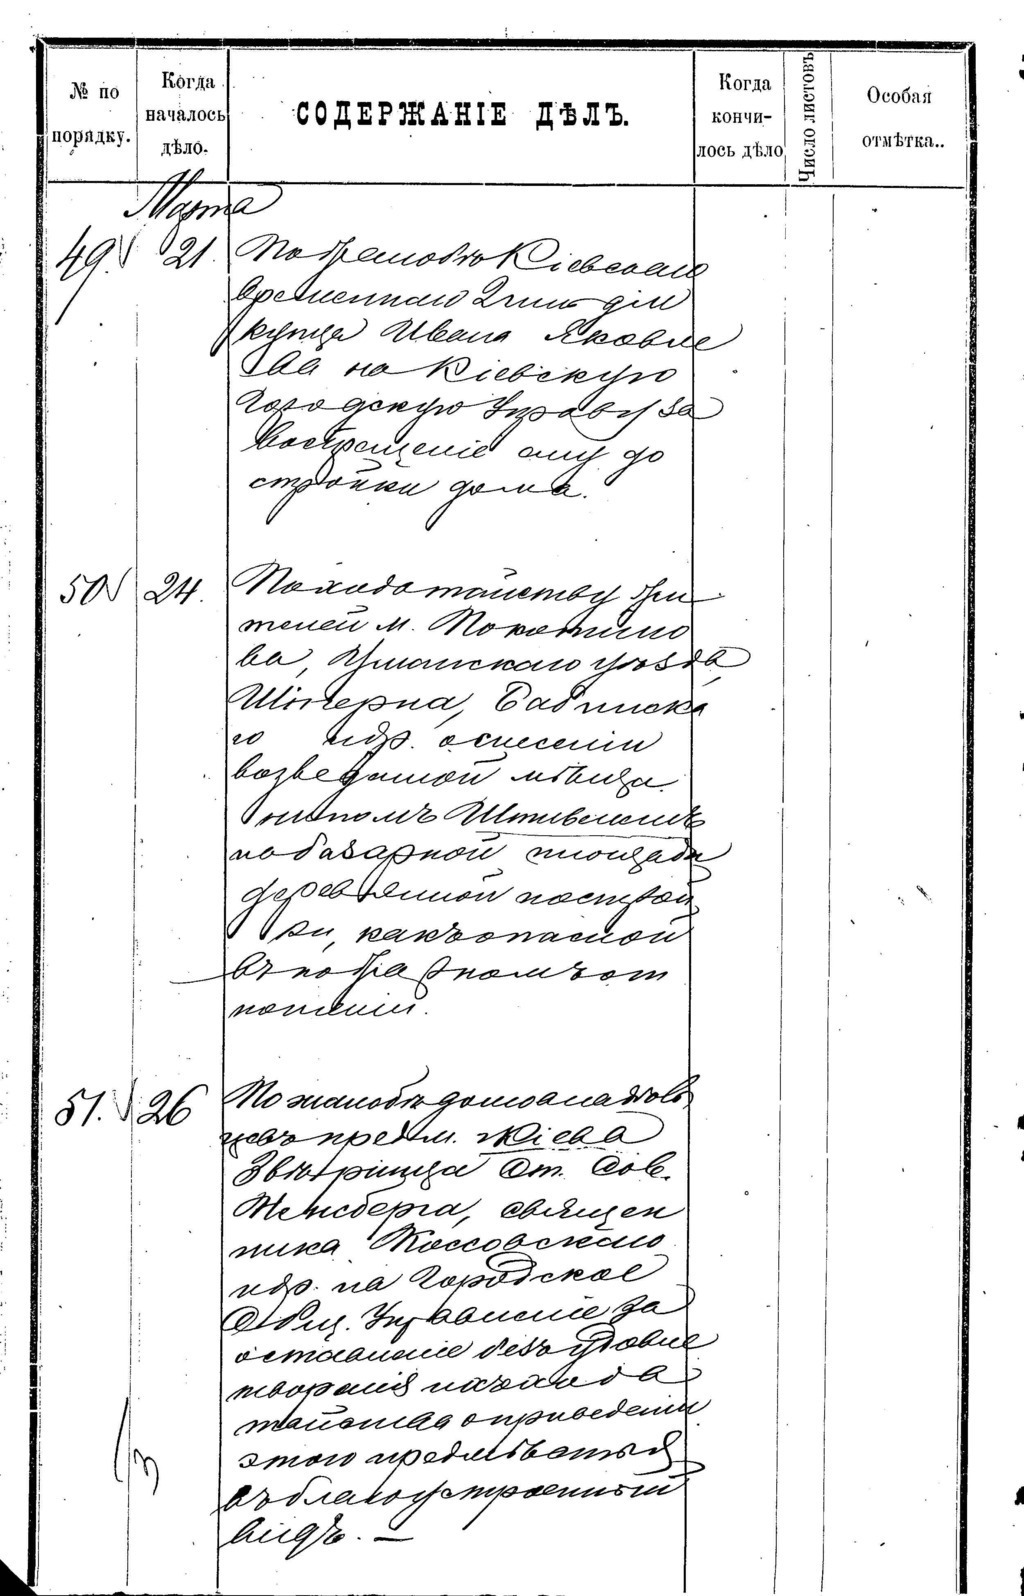 № по порядку.
Когда началось дѣло.
СОДЕРЖАНІЕ ДѢЛЪ.
Когда кончилось дѣло
Число листовъ
Особая отмѣтка..
Марта
49. 21. По жалобѣ Кіевскаго
временнаго 2 гильдіи
купца Ивана Яковле
ва на Кіевскую
Городскую Управу за
воспрещеніе ему до
стройки дома.
50 24. По ходатайству жи
телей м. Покотило
ва, Уманскаго уѣзда,
Шпе́рна, Бабинска
го и др. о снесеніи
возведенной мѣща
ниномъ
на базарной площади
деревянной построй
ки, какъ опасной
въ пожарномъ от
ношеніи.
51. 26 По жалобѣ домовладѣль
цевъ предм. г. Кіева
Звѣринца Ст. Сов.
священ
ника Коссовскаго
и др. на Городское
Общ. Управленіе за
оставленіе безъ удовле
творенія ихъ хода
тайства о приведеніи
этого предмѣстья
въ благоустроенный
видъ. —